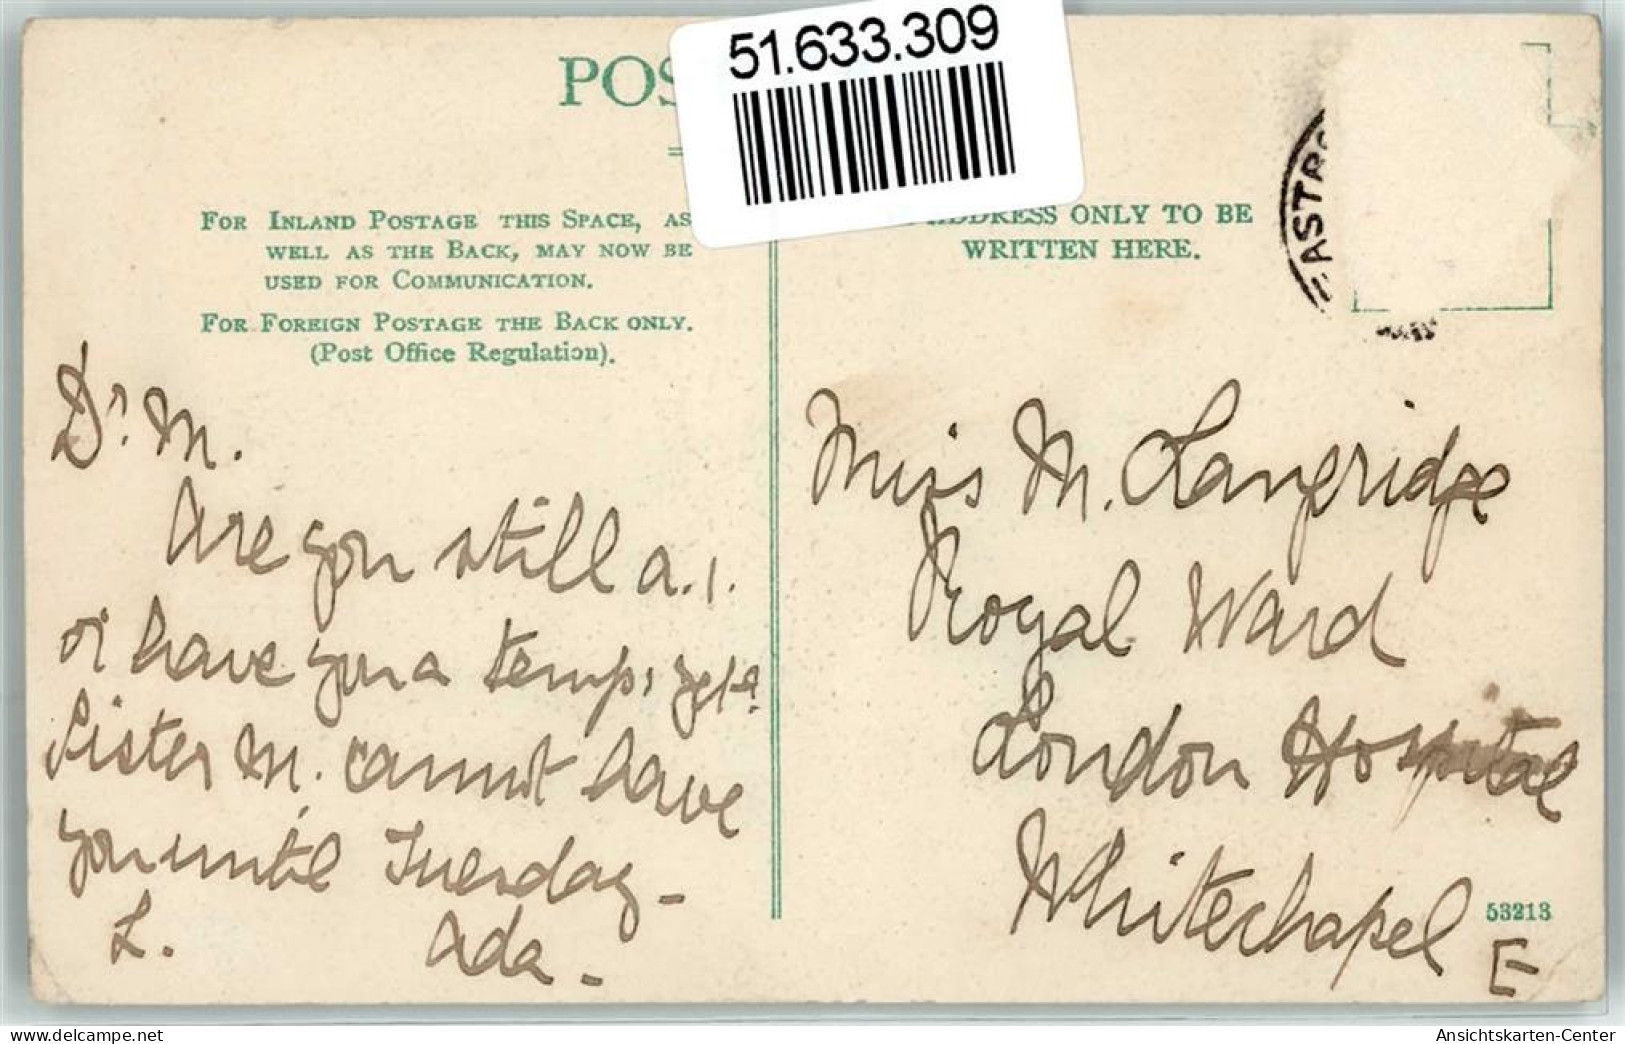 51.633.309
POS
FOR INLAND POSTAGE THIS SPACE, AS
WELL AS THE BACK, MAY NOW BE
USED FOR COMMUNICATION.
FOR FOREIGN POSTAGE THE BACK ONLY.
(Post Office Regulation).
ADDRESS ONLY TO BE
WRITTEN HERE.
EASTBO
Dr M.
Are you still a.1.
or have you a temp. yet?
Sister M. cannot have
you until Tuesday -
L. Ada -
Miss M. Langridge
Royal Ward
London Hospital
Whitechapel
E
53213
www.delcampe.net
Ansichtskarten-Center